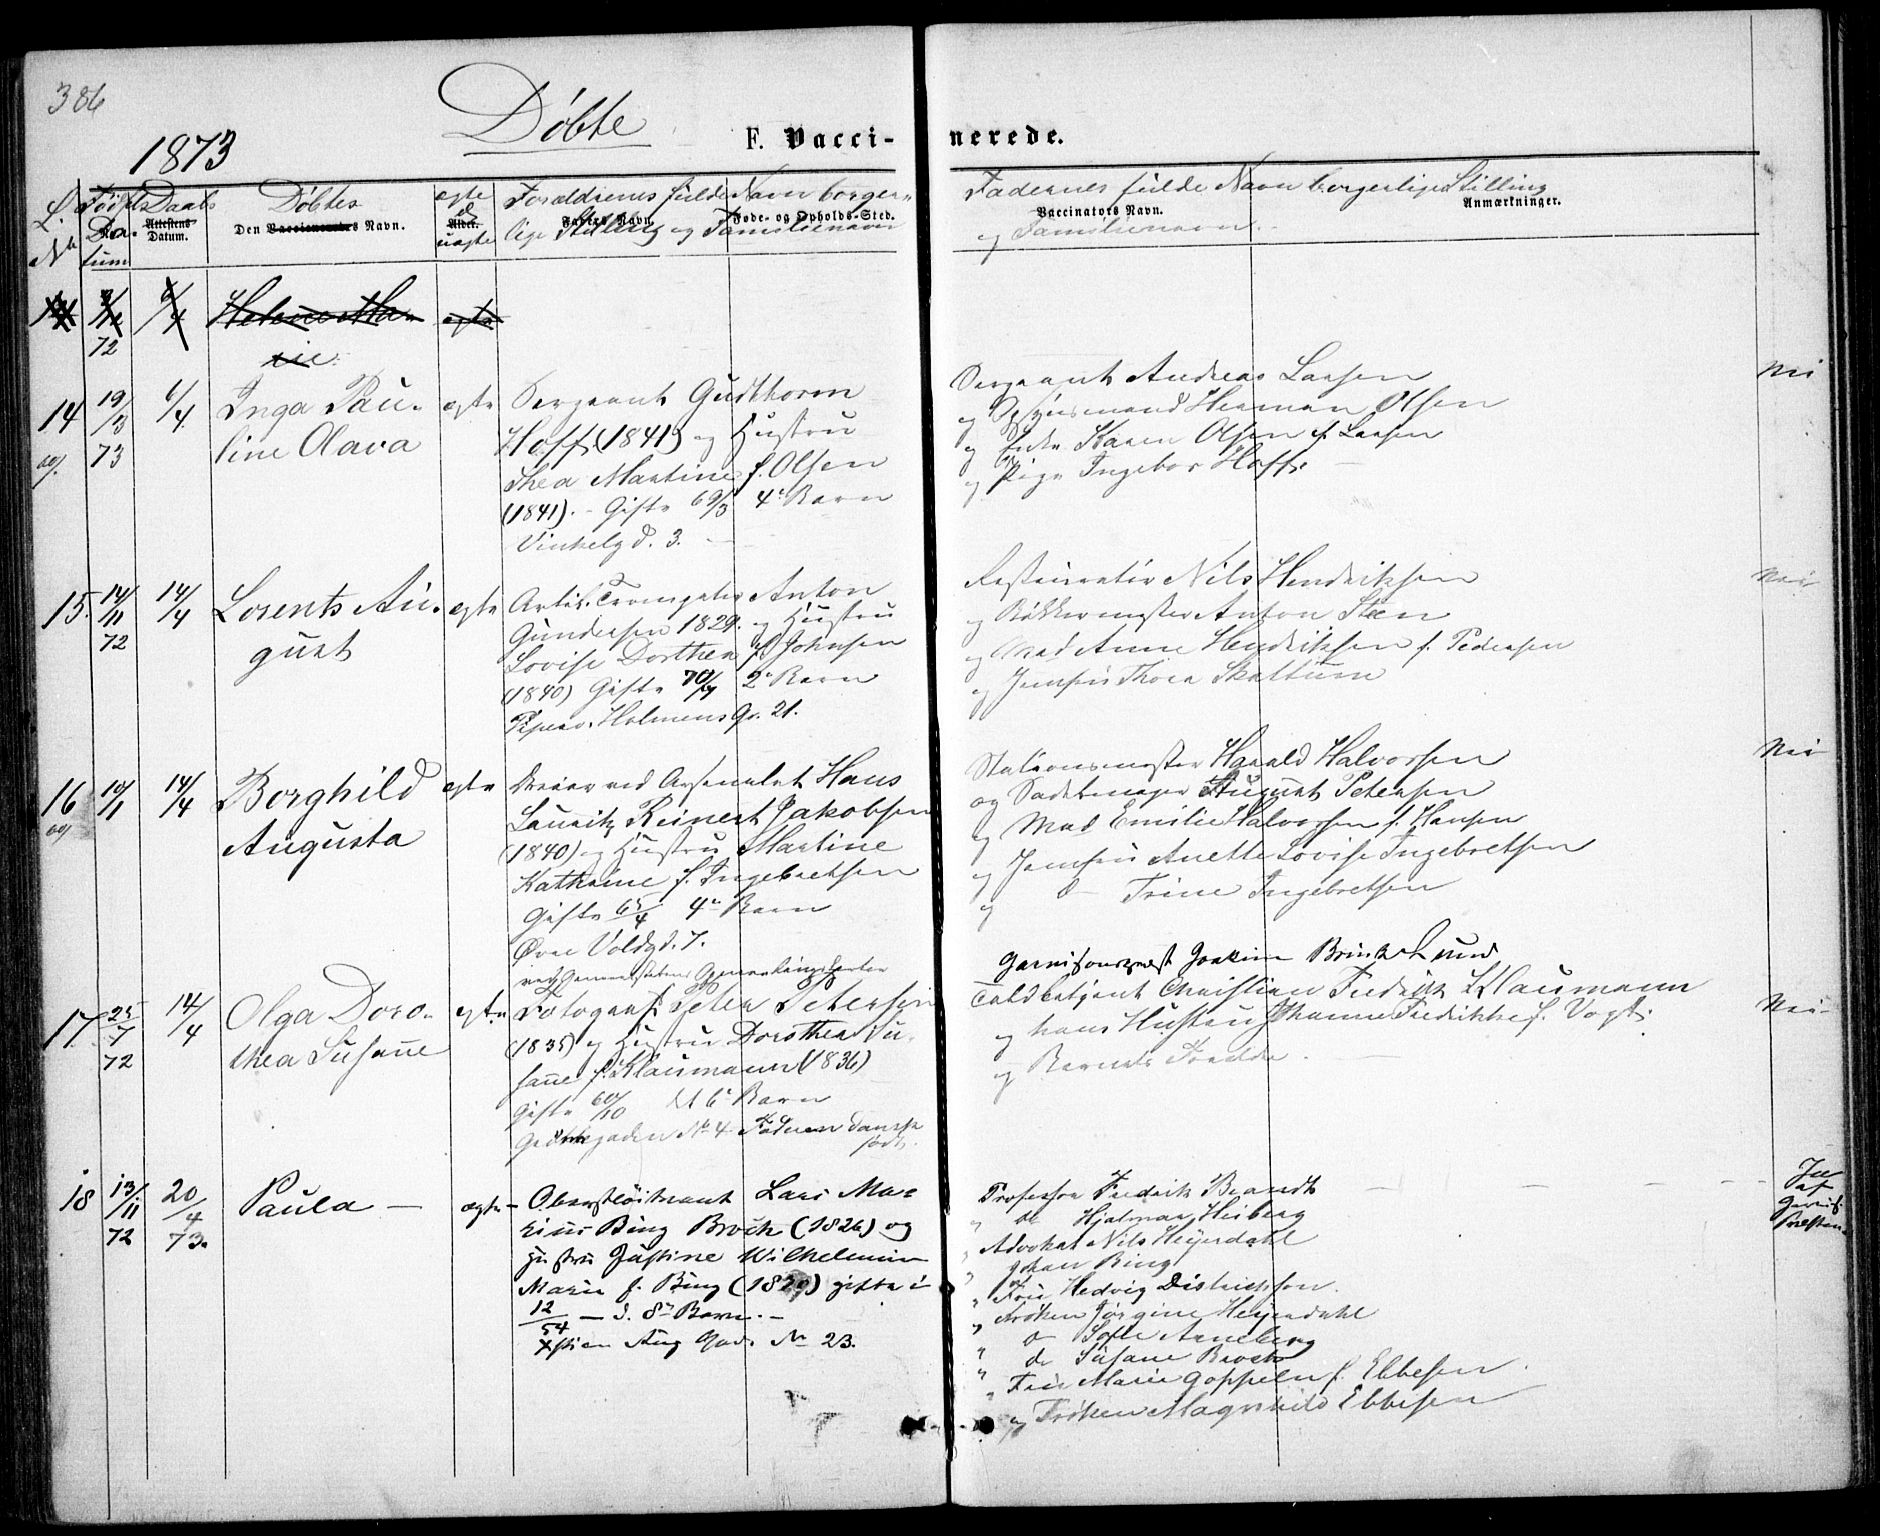 386
Døbte
1873
F. Vacci-
nerede.
L. Nr
Fødsels Da-
tum
Daabs
Attestens
Datum.
Døbtes
Den Vaccineredes Navn.
ægte
el
Alder.
uægte
Forældrenes fulde Navn borger-
Faders Navn.
Føde- og Opholds-Sted.
lige Stilling og Familienavn
Faddernes fulde Navn borgerlige Stilling
Vaccinators Navn.
Anmærkninger.
og Familienavn.
14
72
6/4
Helene Ma-
rie
ægte
14
19/3
73
6/4
Inga Pau-
line Olava
ægte
Sergeant Gudthorm
Hoff (1841) og Hustru
Thea Martine f. Olsen
(1841). - Gifte 69/3 4e Barn
Vinkelgd. 3.
Sergeant Andreas Larsen
og Herman Olsen
og Enke Karen Olsen f. Larsen
og Pige Ingebor Hoff.
Nei
15.
14/11
72
14/4
Lorents Au-
gust
ægte
Artil. Trompeter Anton
Gundersen 1829. og Hustru
Lovise Dorthea f. Johnsen
(1840) Gifte 70/4 2e Barn
Piperv. Holmens g. 21.
Restauratør Nils Hendriksen
og Bøkkermester Anton Steen
og Mad Anne Hendriksen f. Pedersen
og Jomfru Thora Skattum
Nei
16
10/1
14/4
Borghild
Augusta
ægte
Dreier ved Arsenalet Hans
Lauritz Reinert Jakobsen
(1840) og Hustru Martine
Kathrine f. Ingebretsen
Gifte 65/4 4e Barn
Øvre Voldgd. 7.
Stationsmester Harald Halvorsen
og Sadelmager August Petersen
og Mad Emilie Halvorsen f. Hansen
og Jomfru Anette Lovise Ingebretsen
og do Trine Ingebretsen
Nei
17
25/7
72
14/4
Olga Doro-
thea Susanne
ægte
Fotograf Peter Petersen
(1835) og Hustru Dorothea Su-
sanne f. Klaumann (1836)
Gifte 60/10 6e Barn
No 4 Faderen dansk
født.
Garnisonsprest Joakim Brinch Lund
Toldbetjent Christian Fredrik Klaumann
og hans Hustru Johanne Fredrikke f. Vogt.
og Barnets Forældre.
Nei
18
13/11
72
20/4
73.
Paula
ægte
Oberstløitnant Lars Ma-
rius Bing Broch (1826) og
Hustru Justine Wilhelmine
Marie f. Bing (1829) gifte i
12/54 - d. 8de Barn. -
Xstian Aug Gad. No 23.
Professor Fredrik Brandt
" do Hjalmar Heiberg
" Advokat Nils Heyerdahl
" Johan Bing
" Frue Hedvig Dietrichson.
" Frøken Jørgine Heyerdahl
" do Sofie Arneberg
" do Susane Broch
" Frue Marie Goppeln f. Ebbesen
og Frøken Magnhild Ebbesen
Ja
af
Garnis
Presten